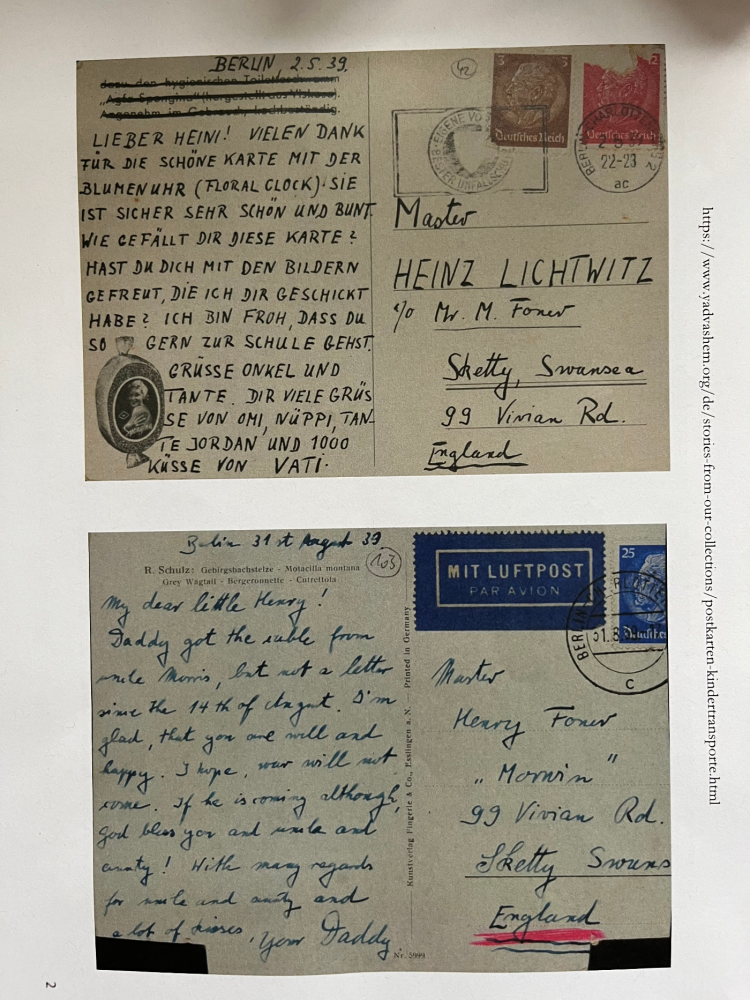 BERLIN, 2.5.39.
dazu den hygienischen
Angenehm im Gebrauch, kochbeständig.
LIEBER HEINI! VIELEN DANK
FÜR DIE SCHÖNE KARTE MIT DER
BLUMENUHR (FLORAL CLOCK). SIE
IST SICHER SEHR SCHÖN UND BUNT.
WIE GEFÄLLT DIR DIESE KARTE?
HAST DU DICH MIT DEN BILDERN
GEFREUT, DIE ICH DIR GESCHICKT
HABE? ICH BIN FROH, DASS DU
SO GERN ZUR SCHULE GEHST.
GRÜSSE ONKEL UND
TANTE. DIR VIELE GRÜS
SE VON OMI, NÜPPI, TAN-
TE JORDAN UND 1000
KÜSSE VON VATI.
42
3 3
Deutsches Reich
12
Deutsches Reich
BERLIN-CHARLOTTENBURG 2
22-23
ac
Master
HEINZ LICHTWITZ
c/o Mr. M. Foner
Sketty, Swansea
99 Vivian Rd.
England
Berlin 31st August 39
103
R. Schulz: Gebirgsbachstelze - Motacilla montana
Grey Wagtail - Bergeronnette - Cutrettola
My dear little Henry!
Daddy got the cable from
uncle Morris, but not a letter
since the 14th of August. I'm
glad, that you are well and
happy. I hope, war will not
come. If he is coming although,
God bless you and uncle and
aunty! With many regards
for uncle and aunty and
a lot of kisses, your Daddy
Kunstverlag Fingerle & Co., Esslingen a. N. — Printed in Germany
Nr. 5999
MIT LUFTPOST
PAR AVION
25
31.8.
c
Master
Henry Foner
"Morwin"
99 Vivian Rd.
Sketty Swans
England
https://www.yadvashem.org/de/stories-from-our-collections/postkarten-kindertransporte.html
2